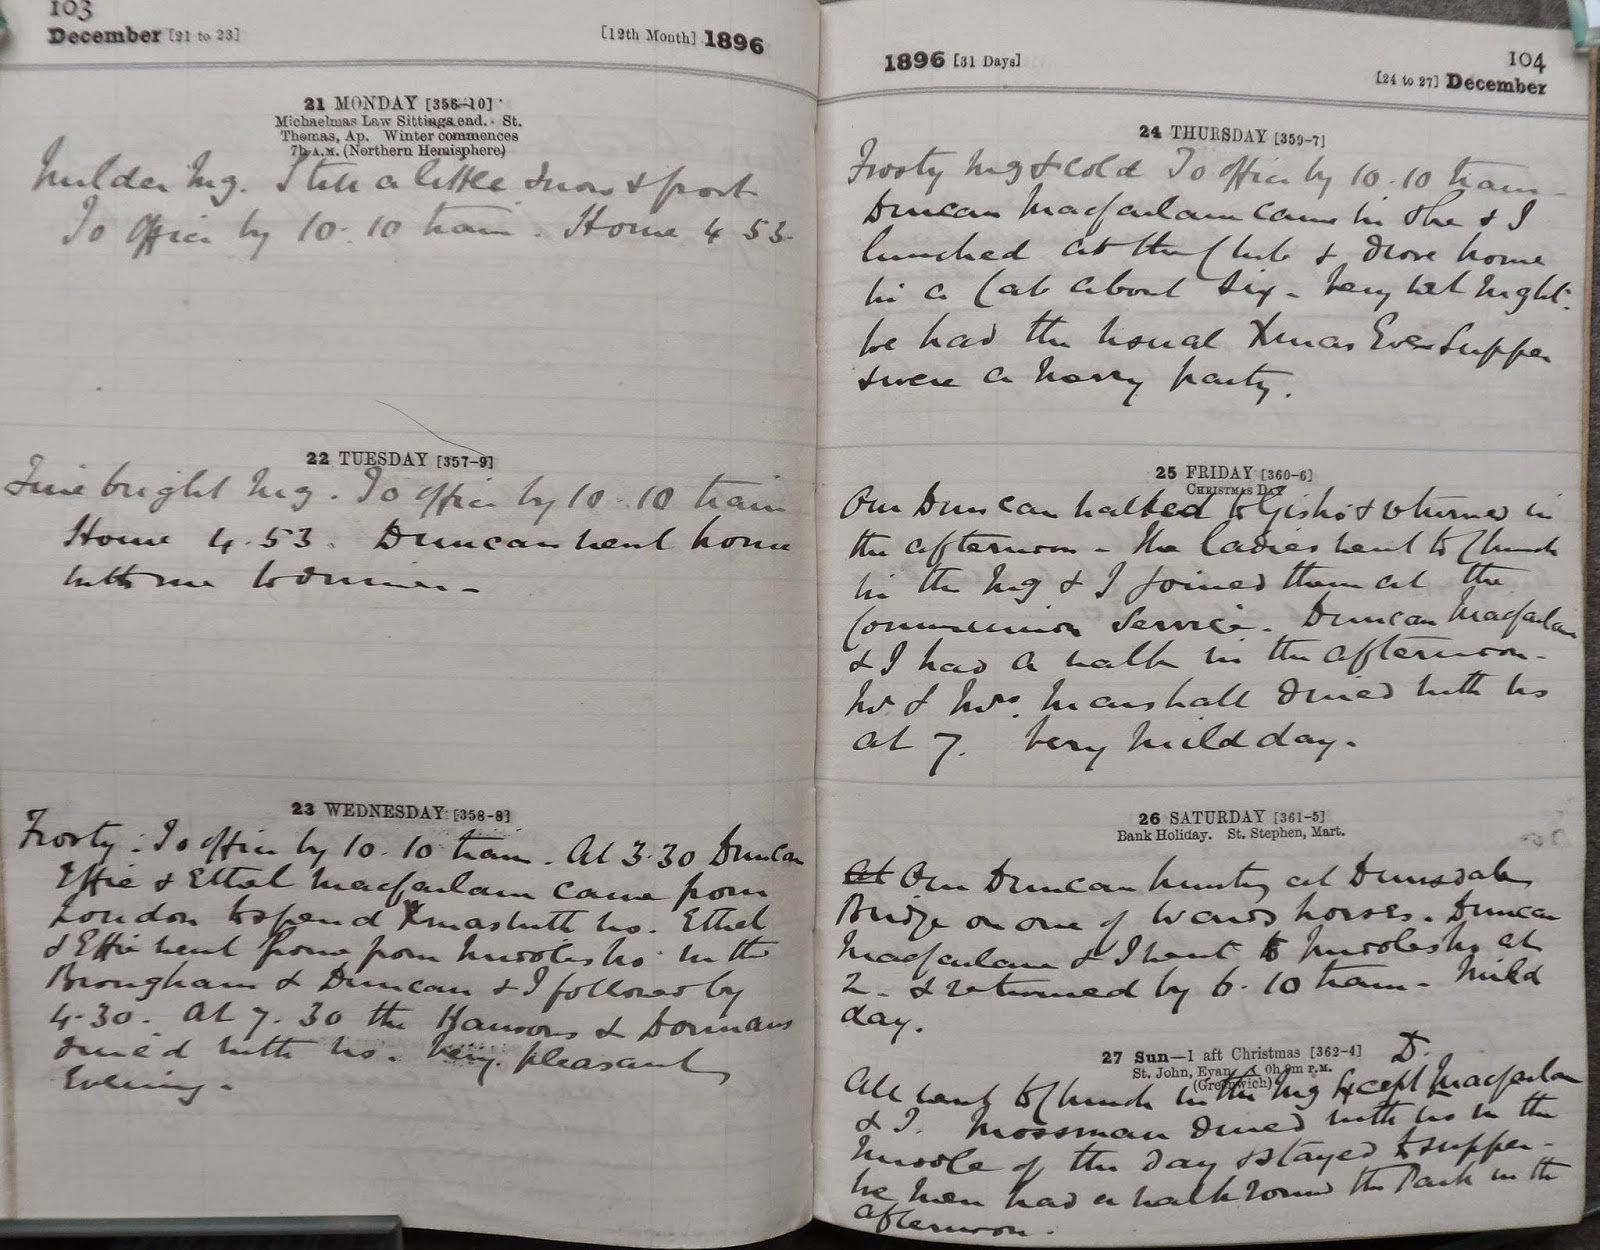 103
December [21 to 23] [12th Month] 1896
21 MONDAY [356-10]
Michaelmas Law Sittings end. St.
Thomas, Ap. Winter commences
7h A.M. (Northern Hemisphere)
Milder Mg. Still a little snow & frost
To office by 10.10 train. Home 4 53
22 TUESDAY [357-9]
Fine bright Mg. To office by 10.10 train
Home 4.53. Duncan went home
with me to dinner -
23 WEDNESDAY [358-8]
Frosty. To office by 10.10 train. At 3.30 Duncan
Effie & Ethel Macfarlane came from
London to spend Xmas with us. Ethel
& Effie went home from Middlesbro in the
Brougham & Duncan & I followed by
4.30. At 7.30 the Hansons & Dormans
dined with us. Very pleasant
Evening.
104
1896 [31 Days] [24 to 27] December
24 THURSDAY [359-7]
Frosty Mg & cold To office by 10.10 train -
Duncan Macfarlane came in & he & I
lunched at the Club & drove home
in a Cab about six - Very wet night.
We had the usual Xmas Eve Supper
& were a merry party.
25 FRIDAY [360-6]
CHRISTMAS DAY
Our Duncan walked to Gisbro & returned in
the afternoon - The Ladies went to Church
in the Mg & I joined them at the
Communion Service. Duncan Macfarlane
& I had a walk in the afternoon -
Mr & Mrs. Marshall dined with us
at 7. Very mild day.
26 SATURDAY [361-5]
Bank Holiday. St. Stephen, Mart.
At Our Duncan hunting at Dunsdale
Bridge on one of Wards horses. Duncan
Macfarlane & I went to Middlesbro at
2 - & returned by 6.10 train - Mild
day.
27 Sun—1 aft Christmas [362-4]
St. John, Evan. 0h 9m P.M.
(Greenwich)
D.
All went to Church in the Mg Except Macfarlane
& I. Mossman dined with us in the
middle of the day & stayed to supper -
We men had a walk round the Park in the
afternoon.